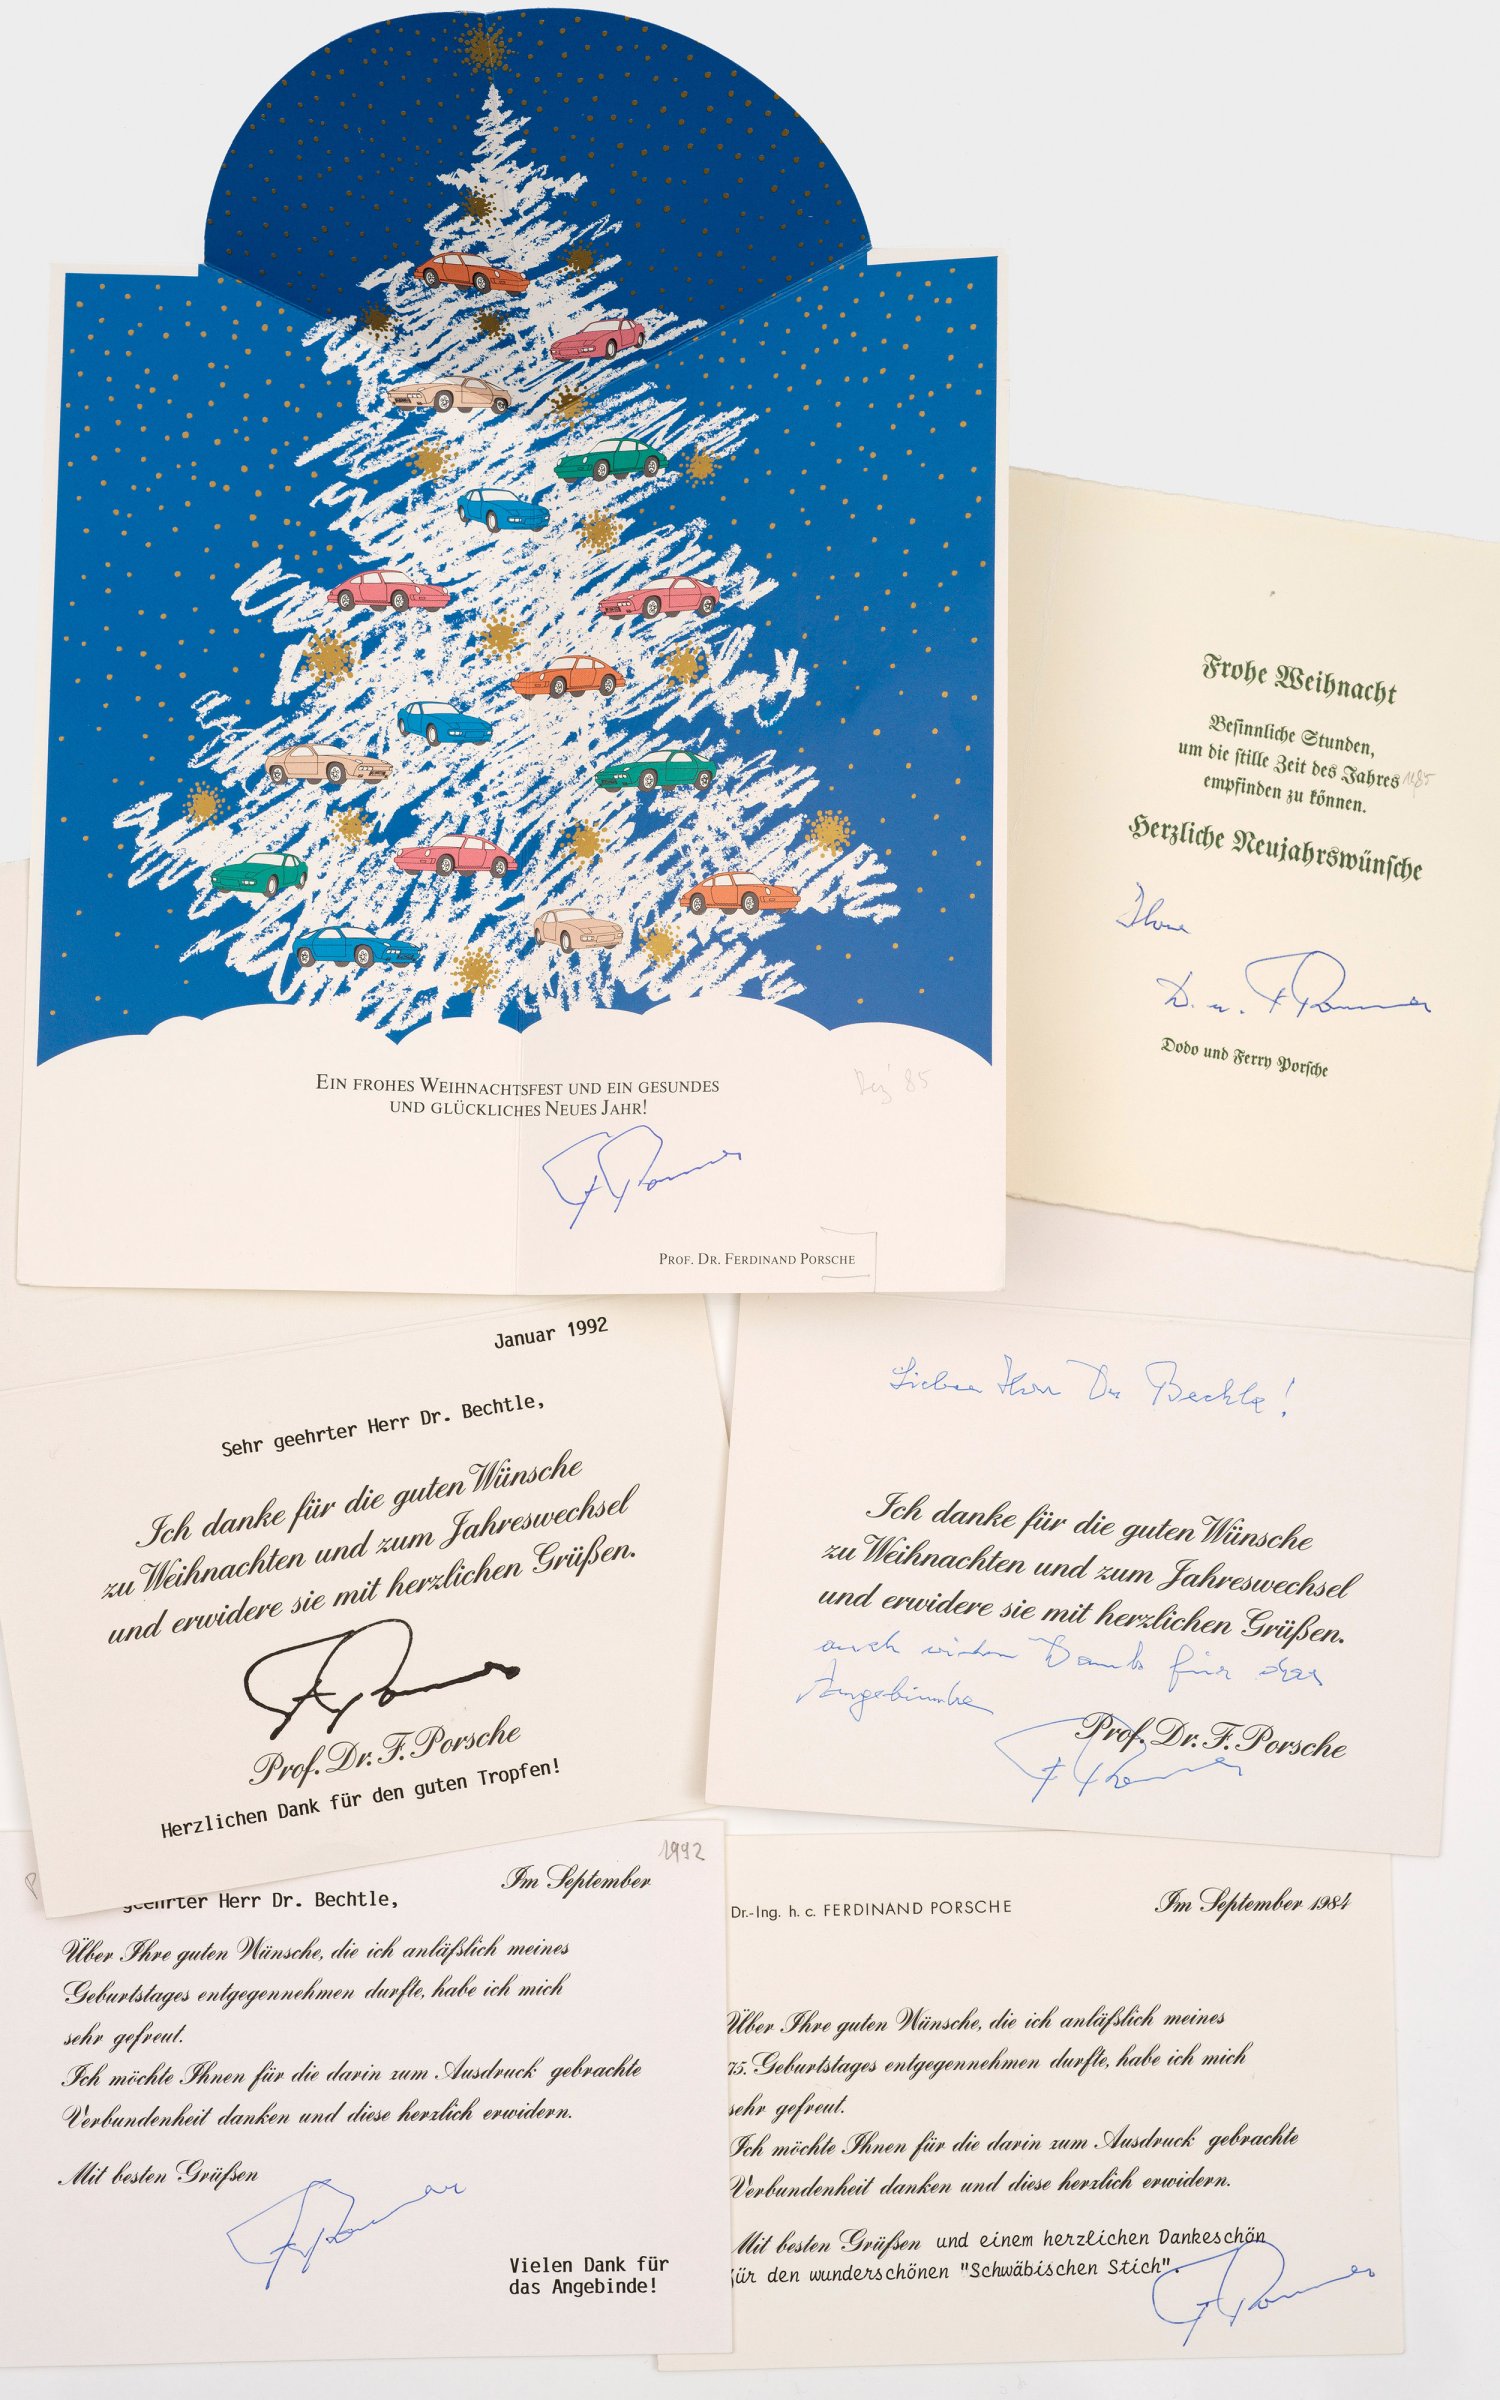 EIN FROHES WEIHNACHTSFEST UND EIN GESUNDES
UND GLÜCKLICHES NEUES JAHR!
Dez '85
PROF. DR. FERDINAND PORSCHE
Frohe Weihnacht
Besinnliche Stunden,
um die stille Zeit des Jahres 1985
empfinden zu können.
Herzliche Neujahrswünsche
Ihre
D. u. F Porsche
Dodo und Ferry Porsche
Januar 1992
Sehr geehrter Herr Dr. Bechtle,
Ich danke für die guten Wünsche
zu Weihnachten und zum Jahreswechsel
und erwidere sie mit herzlichen Grüßen.
Prof. Dr. F. Porsche
Herzlichen Dank für den guten Tropfen!
Lieber Herr Dr Bechtle!
Ich danke für die guten Wünsche
zu Weihnachten und zum Jahreswechsel
und erwidere sie mit herzlichen Grüßen.
auch vielen Dank für das
Angebinde
Prof. Dr. F. Porsche
1992
Im September
geehrter Herr Dr. Bechtle,
Über Ihre guten Wünsche, die ich anläßlich meines
Geburtstages entgegennehmen durfte, habe ich mich
sehr gefreut.
Ich möchte Ihnen für die darin zum Ausdruck gebrachte
Verbundenheit danken und diese herzlich erwidern.
Mit besten Grüßen
Vielen Dank für
das Angebinde!
Dr.-Ing. h. c. FERDINAND PORSCHE
Im September 1984
Über Ihre guten Wünsche, die ich anläßlich meines
75. Geburtstages entgegennehmen durfte, habe ich mich
sehr gefreut.
Ich möchte Ihnen für die darin zum Ausdruck gebrachte
Verbundenheit danken und diese herzlich erwidern.
Mit besten Grüßen und einem herzlichen Dankeschön
für den wunderschönen "Schwäbischen Stich".